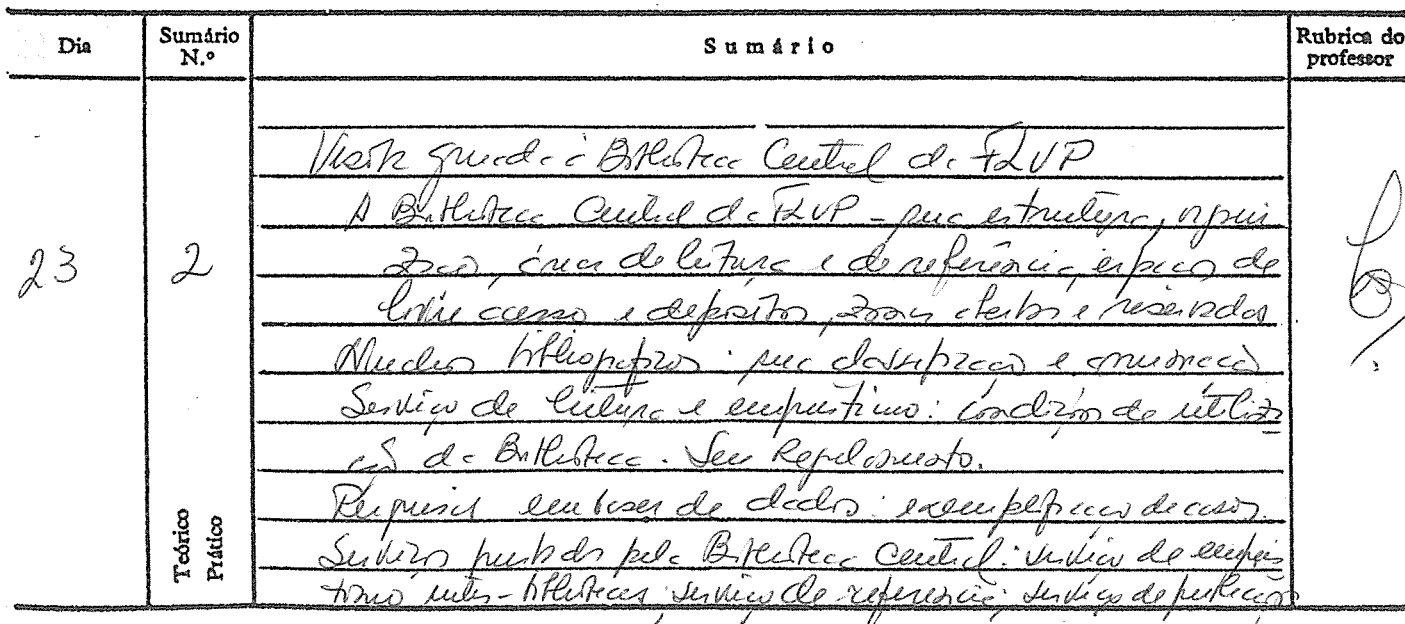 Dia
Sumário N.º
Sumário
Rubrica do professor
Visita guiada à Biblioteca Central da FLUP
A Biblioteca Central da FLUP - sua estrutura, organi
zação, áreas de leitura e de referência, espaços de
livre acesso e depósitos, zonas abertas e reservadas
Núcleos bibliográficos: sua classificação e arrumação
Serviço de leitura e empréstimo: condições de utiliza
ção da Biblioteca. Seu Regulamento.
Pesquisa em bases de dados: exemplificação de casos.
Serviços prestados pela Biblioteca Central: serviço de emprés
timo inter-bibliotecas; serviço de referência; serviço de
23
2
Teórico
Prático